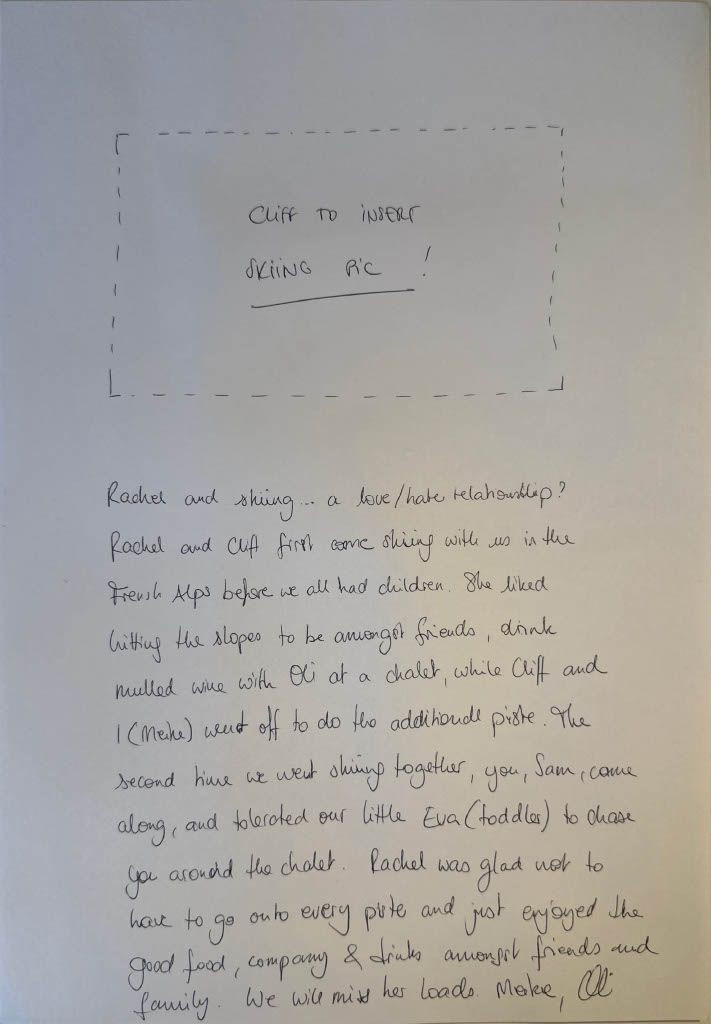 CLIFF TO INSERT
SKIING PIC !
Rachel and skiing... a love/hate relationship?
Rachel and Cliff first came skiing with us in the
French Alps before we all had children. She liked
hitting the slopes to be amongst friends, drink
mulled wine with Oli at a chalet, while Cliff and
I (Meike) went off to do the additional piste. The
second time we went skiing together, you, Sam, came
along, and tolerated our little Eva (toddler) to chase
you around the chalet. Rachel was glad not to
have to go onto every piste and just enjoyed the
good food, company & drinks amongst friends and
family. We will miss her loads. Meike, Oli